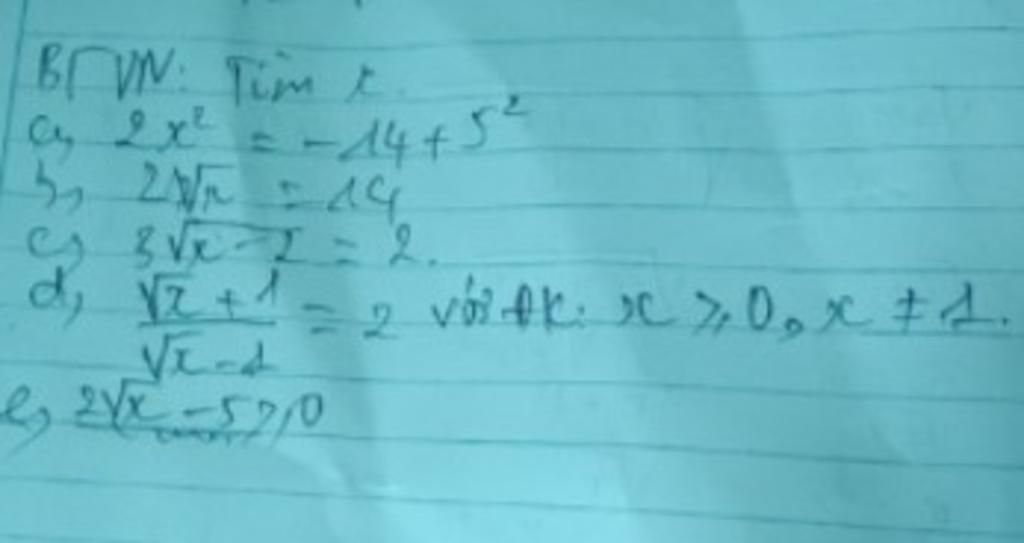 BTVN: Tìm x.
a, 2x² = -14 + 5²
b, 2√x = 14
c, 3√x-1 = 2.
d, √x + 1 / √x - 1 = 2 với ĐK: x ≥ 0, x ≠ 1.
e, 2√x - 5 ≥ 0